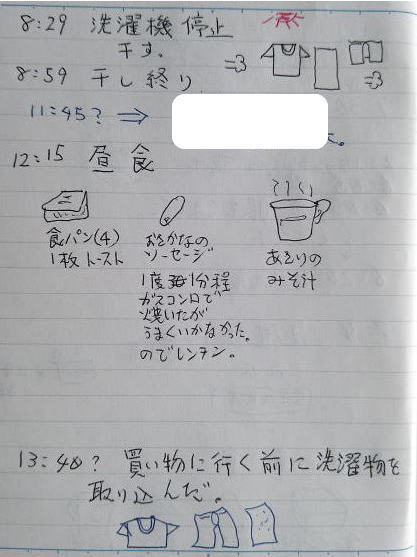 8:29 洗濯機停止
干す。
8:59 干し終り
11:45? ⇒
12:15 昼食
食パン(4)
1枚トースト
おさかなの
ソーセージ
1度1分程
ガスコンロで
焼いたが
うまくいかなかった。
のでレンチン。
あさりの
みそ汁
13:40? 買い物に行く前に洗濯物を
取り込んだ。